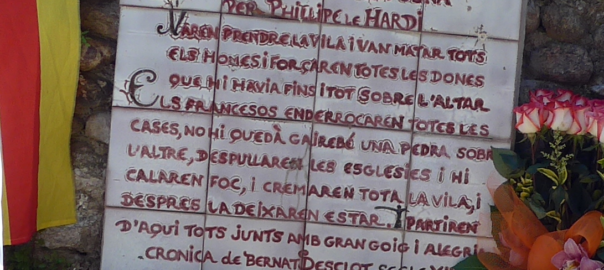 PER PHILLIPE LE HARDI
VAREN PRENDRE LA VILA I VAN MATAR TOTS
ELS HOMES I FORÇAREN TOTES LES DONES
QUE HI HAVIA FINS I TOT SOBRE L'ALTAR
ELS FRANCESOS ENDERROCAREN TOTES LES
CASES, NO HI QUEDÀ GAIREBÉ UNA PEDRA SOBR
L'ALTRE, DESPULLAREN LES ESGLESIES I HI
CALAREN FOC, I CREMAREN TOTA LA VILA, I
DESPRES LA DEIXAREN ESTAR. I PARTIREN
D'AQUI TOTS JUNTS AMB GRAN GOIG I ALEGRI
CRONICA de BERNAT DESCLOT